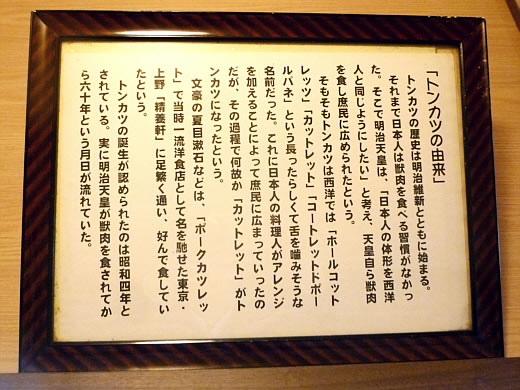 「トンカツの由来」
トンカツの歴史は明治維新とともに始まる。
それまで日本人は獣肉を食べる習慣がなかっ
た。そこで明治天皇は、「日本人の体形を西洋
人と同じようにしたい」と考え、天皇自ら獣肉
を食し庶民に広められたという。
そもそもトンカツは西洋では「ホールコット
レッツ」「カットレット」「コートレットドポー
ルバネ」という長ったらしくて舌を噛みそうな
名前だった。これに日本人の料理人がアレンジ
を加えることによって庶民に広まっていったの
だが、その過程で何故か「カットレット」がト
ンカツになったという。
文豪の夏目漱石などは、「ポークカツレッ
ト」で当時一流洋食店として名を馳せた東京・
上野「精養軒」に足繁く通い、好んで食してい
たという。
トンカツの誕生が認められたのは昭和四年と
されている。実に明治天皇が獣肉を食されてか
ら六十年という月日が流れていた。